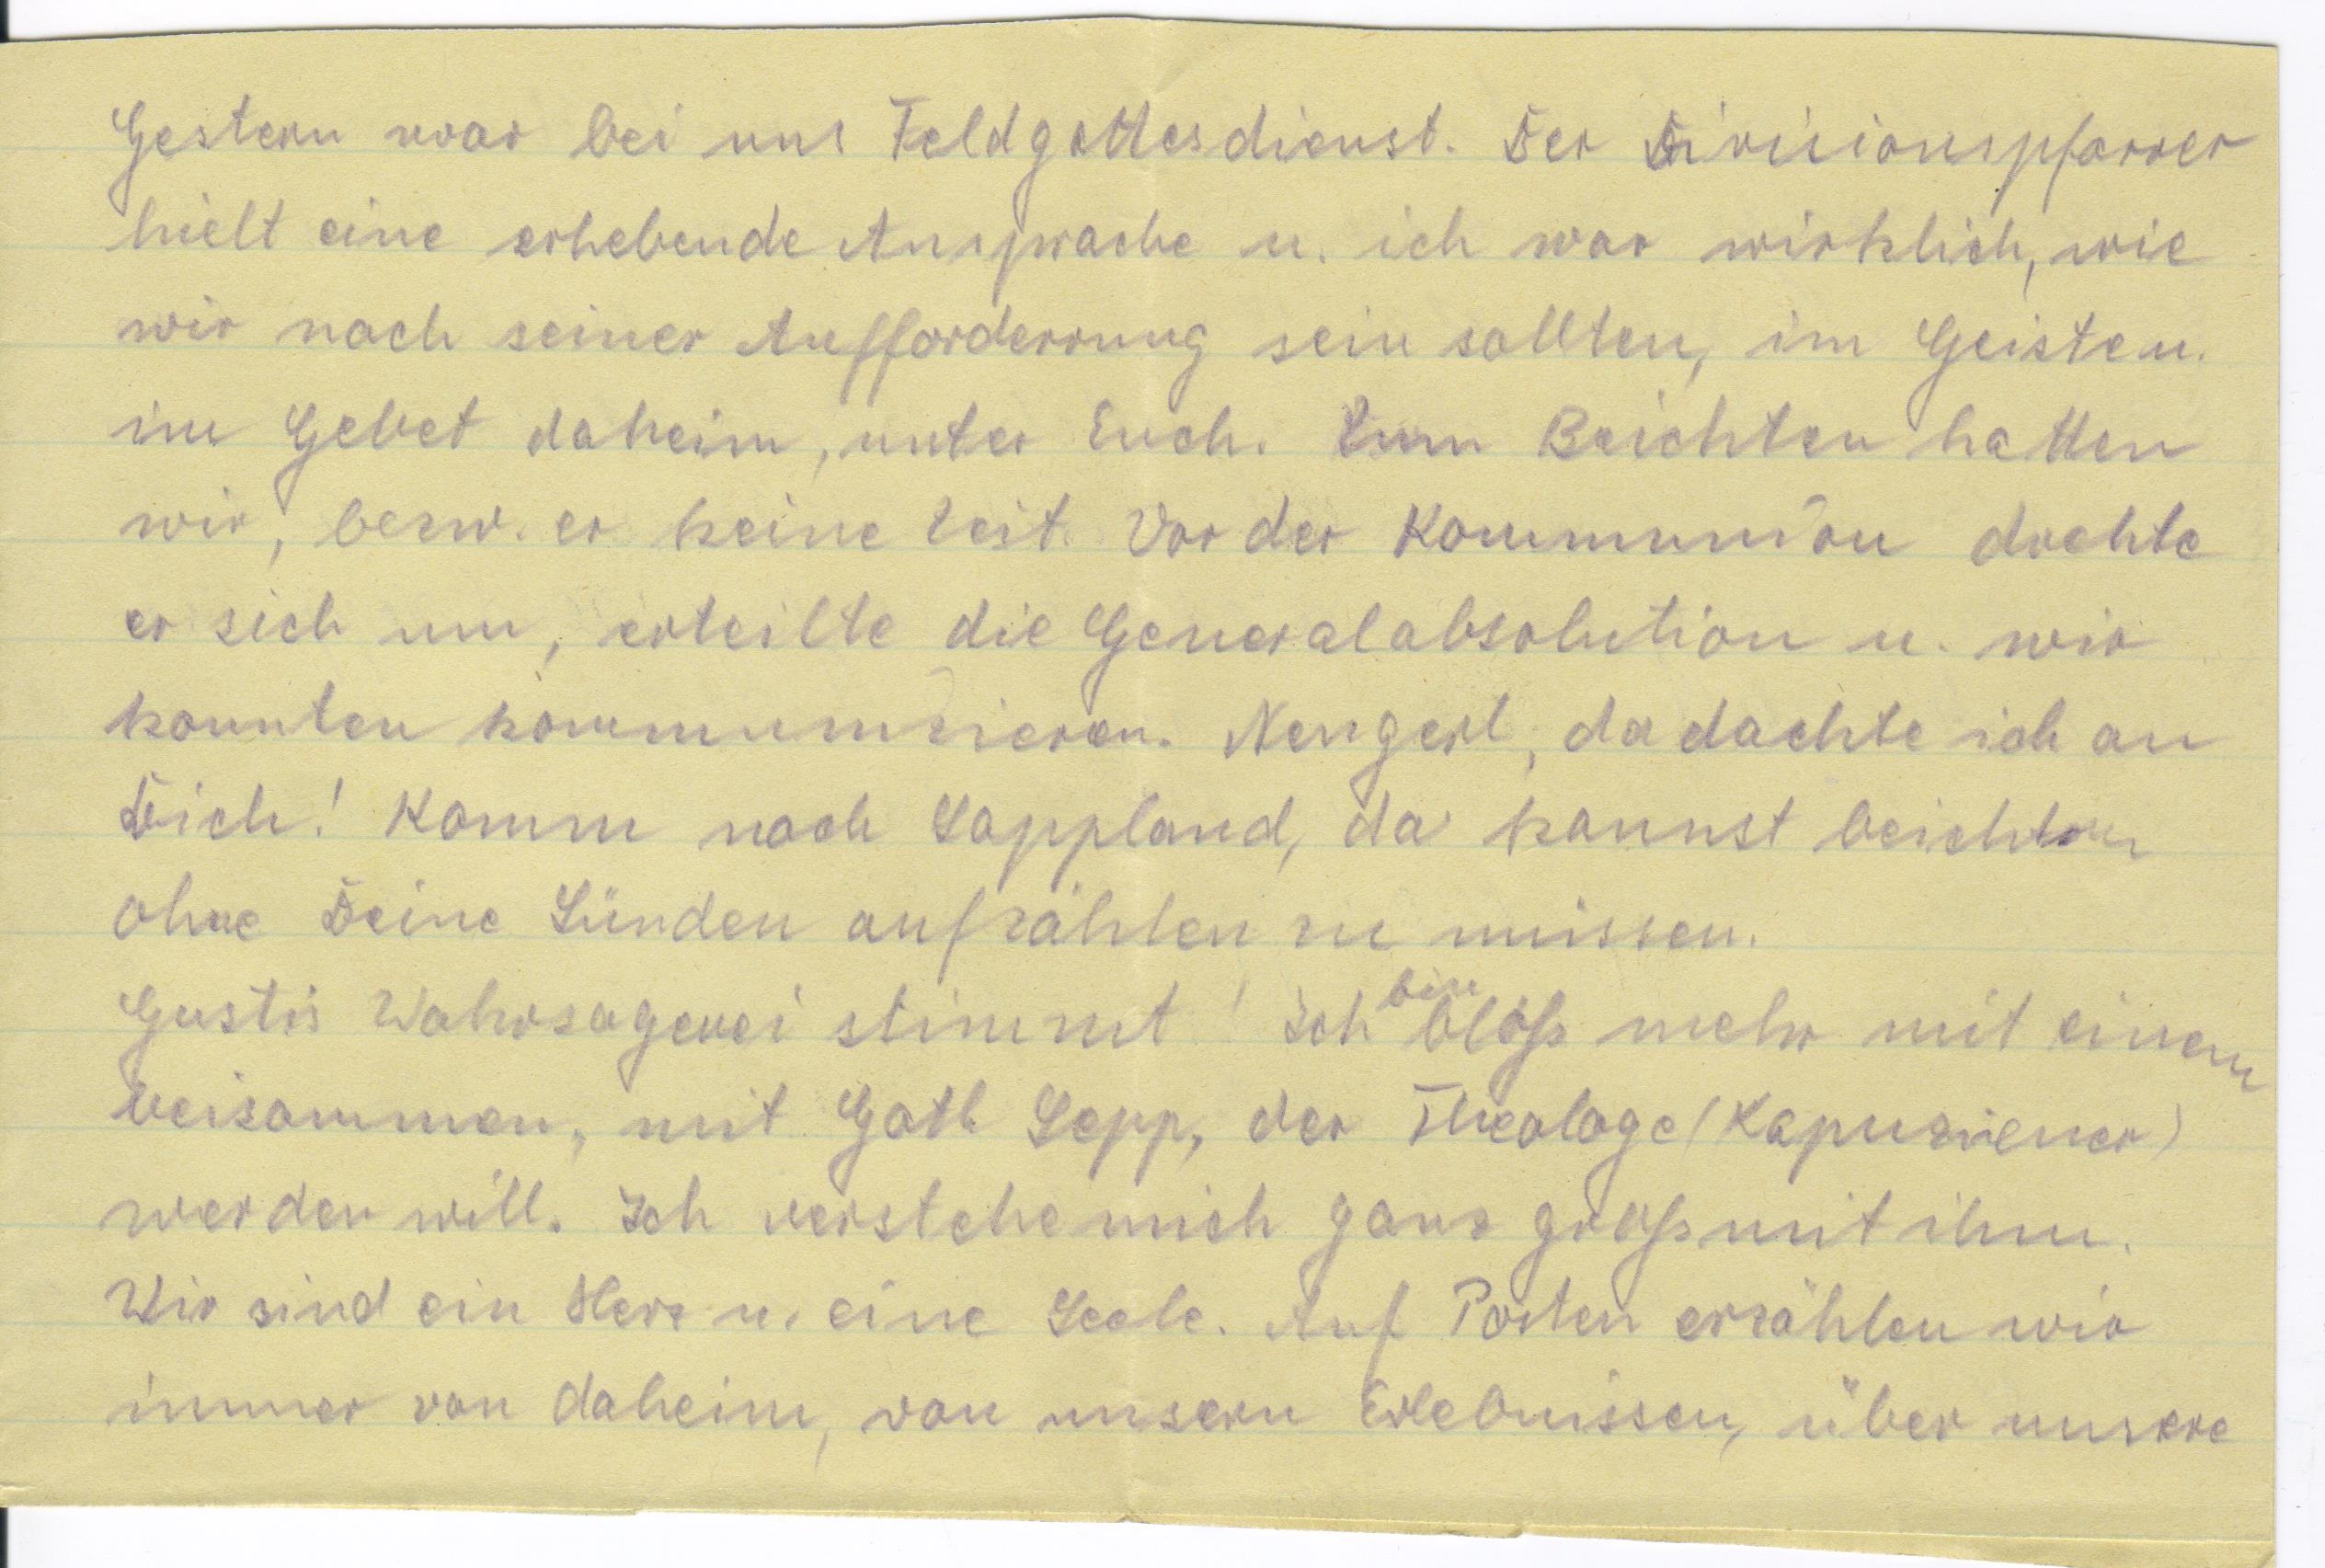 Gestern war bei uns Feldgottesdienst. Der Divisionspfarrer
hielt eine erhebende Ansprache u. ich war wirklich, wie
wir nach seiner Aufforderrung sein sollten, im Geiste u.
im Gebet daheim, unter Euch. Zum Beichten hatten
wir, bezw. er keine Zeit. Vor der Kommunion drehte
er sich um, erteilte die Generalabsolution u. wir
konnten kommunizieren. da dachte ich an
Dich! Komm nach Lappland, da kannst beichten
ohne Deine Sünden aufzählen zu müssen.
Gustis Wahrsagerei stimmt! Ich bin bloß mehr mit einem
beisammen, mit Sepp, der Theologe (Kapuziener)
werden will. Ich verstehe mich ganz groß mit ihm.
Wir sind ein Herz u. eine Seele. Auf Posten erzählen wir
immer von daheim, von unsern Erlebnissen, über unsere